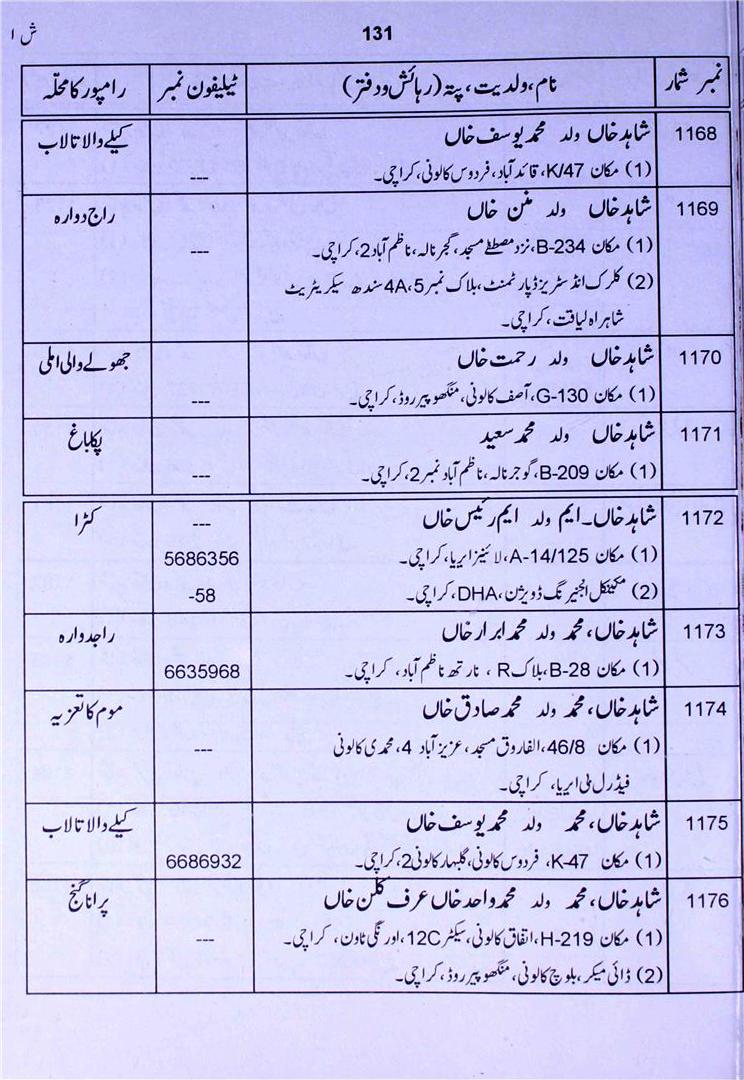 131
ش ا
نمبر شمار	نام، ولدیت، پتہ (رہائش و دفتر)	ٹیلیفون نمبر	رامپور کا محلّہ
1168	شاہد خاں ولد محمد یوسف خاں	کیلے والا تالاب
(1) مکان K/47، قائد آباد، فردوس کالونی، کراچی۔	---
1169	شاہد خاں ولد منن خاں	راج دوارہ
(1) مکان B-234، نزد مصطفےٰ مسجد، گجر نالہ، ناظم آباد 2، کراچی۔	---
(2) کلرک انڈسٹریز ڈپارٹمنٹ، بلاک نمبر 5، 4A سندھ سیکریٹریٹ
شاہراہ لیاقت، کراچی۔
1170	شاہد خاں ولد رحمت خاں	جھولے والی املی
(1) مکان G-130، آصف کالونی، منگھوپیر روڈ، کراچی۔	---
1171	شاہد خاں ولد محمد سعید	پکا باغ
(1) مکان B-209، گوجر نالہ، ناظم آباد نمبر 2، کراچی۔	---
1172	شاہد خاں۔ ایم ولد ایم رئیس خاں	---	کٹرا
(1) مکان A-14/125، لائینز ایریا، کراچی۔	5686356
(2) مکینکل انجیرنگ ڈویژن، DHA، کراچی۔	-58
1173	شاہد خاں، محمد ولد محمد ابرار خاں	راجدوارہ
(1) مکان B-28، بلاک R ، نارتھ ناظم آباد، کراچی۔	6635968
1174	شاہد خاں، محمد ولد محمد صادق خاں	موم کا تعزیہ
(1) مکان 46/8، الفاروق مسجد، عزیز آباد 4، محمدی کالونی	---
فیڈرل بی ایریا، کراچی۔
1175	شاہد خاں، محمد ولد محمد یوسف خاں	کیلے والا تالاب
(1) مکان K-47، فردوس کالونی، گلبہار کالونی 2، کراچی۔	6686932
1176	شاہد خاں، محمد ولد محمد واحد خاں عرف کلن خاں	پرانا گنج
(1) مکان H-219، اتفاق کالونی، سیکٹر 12C، اورنگی ٹاون، کراچی۔	---
(2) ڈائی میکر، بلوچ کالونی، منگھوپیر روڈ، کراچی۔